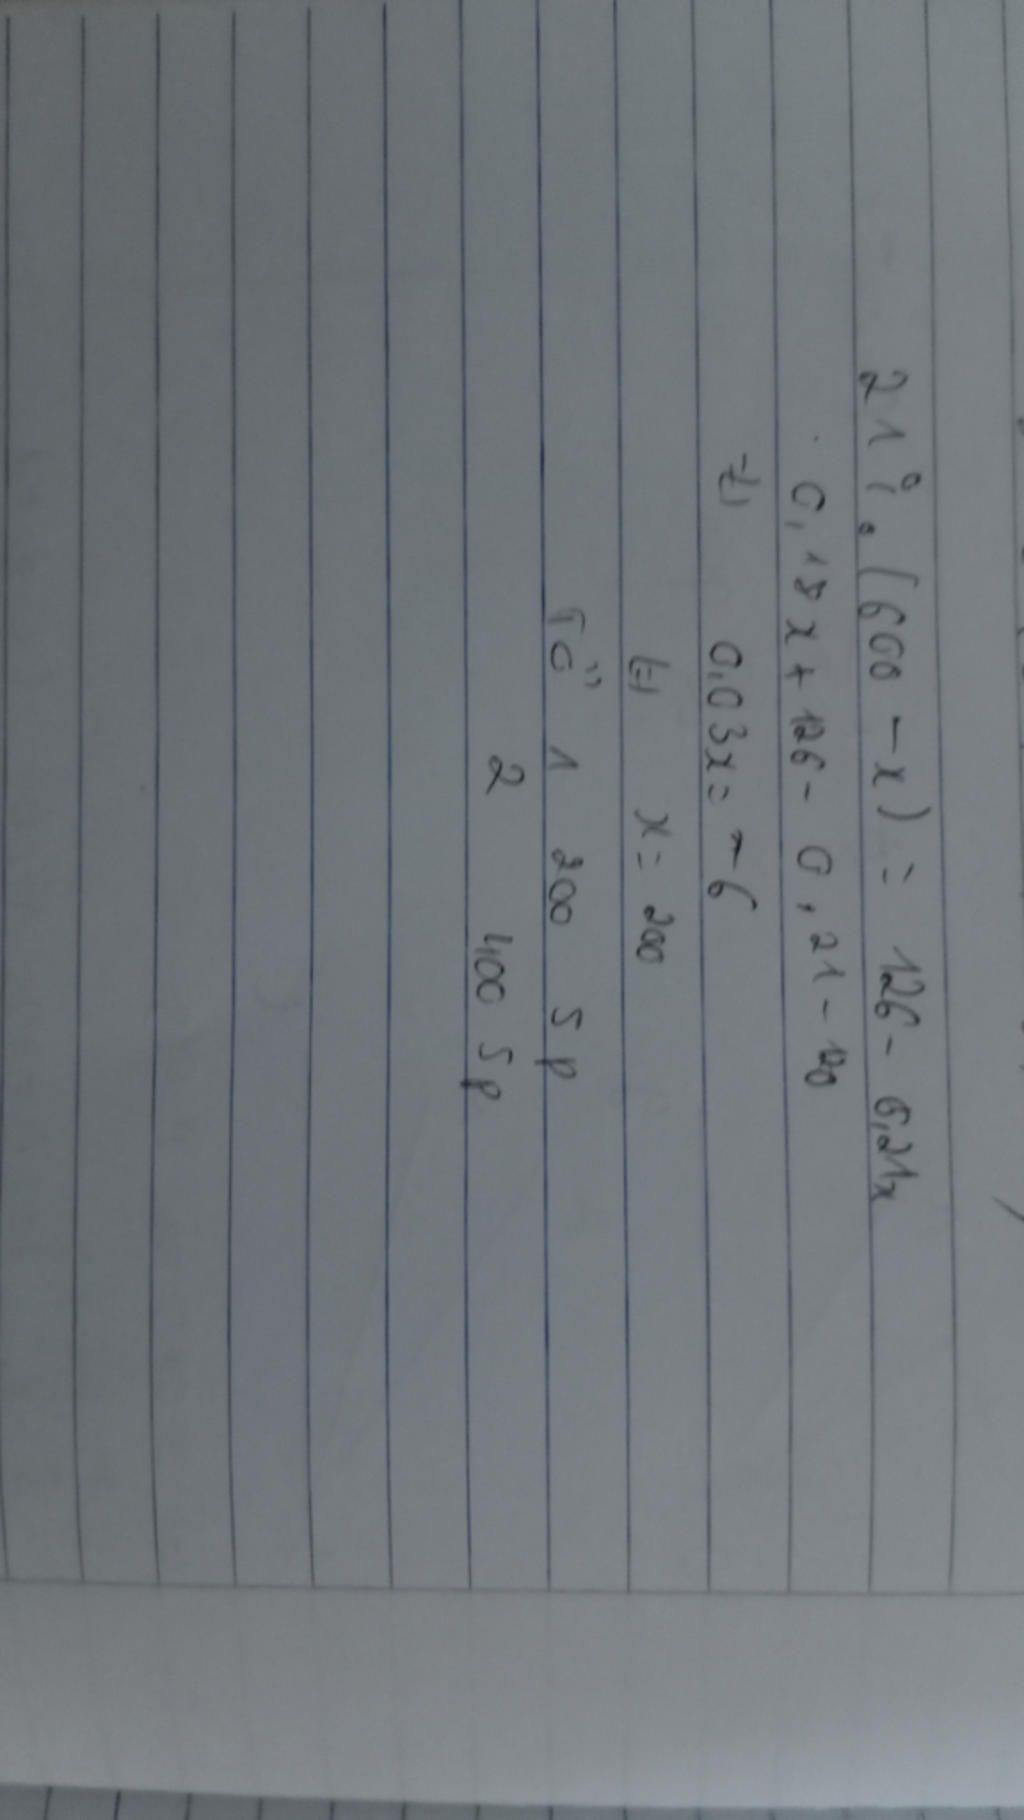 21%.(600 - x) = 126 - 0,21x
0,18x + 126 - 0,21 - 120
0,03x = -6
x = 200
Tổ 1 200 sp
2 400 sp